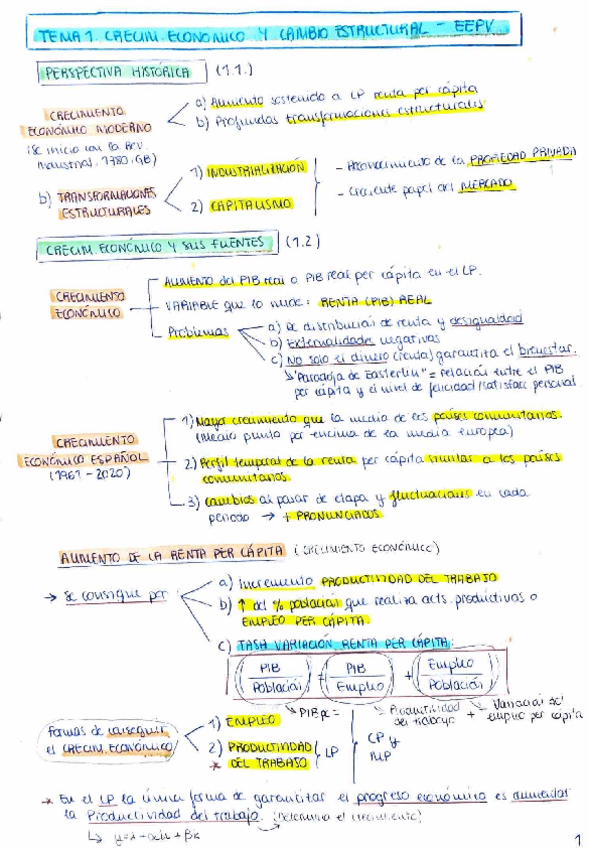 TEMA 1. CRECIM. ECONÓMICO Y CAMBIO ESTRUCTURAL - EEPV
PERSPECTIVA HISTÓRICA (1.1.)
CRECIMIENTO
ECONÓMICO MODERNO
(se inicia con la Rev.
Industrial, 1780, GB)
a) Aumento sostenido a LP renta per cápita
b) Profundas transformaciones estructurales
b) TRANSFORMACIONES
ESTRUCTURALES
1) INDUSTRIALIZACIÓN
2) CAPITALISMO
- Reconocimiento de la PROPIEDAD PRIVADA
- Creciente papel del MERCADO
CRECIM. ECONÓMICO Y SUS FUENTES (1.2)
CRECIMIENTO
ECONÓMICO
AUMENTO del PIB real o PIB real per cápita en el LP.
VARIABLE que lo mide: RENTA (PIB) REAL
Problemas
a) De distribución de renta y desigualdad
b) Externalidades negativas
c) No solo el dinero (renta) garantiza el bienestar.
↳ "Paradoja de Easterlin" = relación entre el PIB
per cápita y el nivel de felicidad/satisfacc personal
CRECIMIENTO
ECONÓMICO ESPAÑOL
(1961-2020)
1) Mayor crecimiento que la media de los países comunitarios.
(Medio punto por encima de la media europea)
2) Perfil temporal de la renta per cápita similar a los países
comunitarios.
3) Cambios al pasar de etapa y fluctuaciones en cada
periodo → + PRONUNCIADOS
AUMENTO DE LA RENTA PER CÁPITA (CRECIMIENTO ECONÓMICO)
→ Se consigue por
a) Incremento PRODUCTIVIDAD DEL TRABAJO
b) ↑ del % población que realiza acts. productivas o
EMPLEO PER CÁPITA
c) TASA VARIACIÓN RENTA PER CÁPITA:
(PIB / Población) = (PIB / Empleo) + (Empleo / Población)
↳ PIBpc = Productividad del trabajo + Variación del empleo per cápita
Formas de conseguir
el CRECIM. ECONÓMICO
1) EMPLEO
2) PRODUCTIVIDAD
* DEL TRABAJO
LP
CP y
MP
* En el LP la única forma de garantizar el progreso económico es aumentar
la Productividad del trabajo. (Determina el crecimiento)
↳ y = λ + αn + βk
1